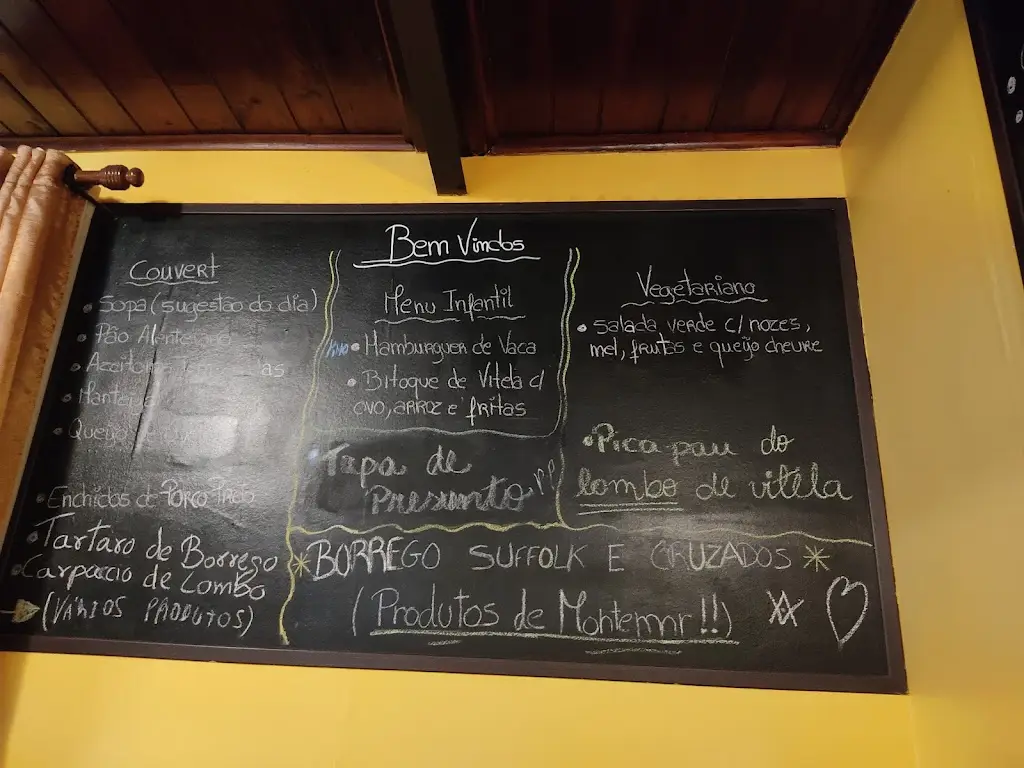 Bem Vindos
Couvert
• Sopa (sugestão do dia)
• Pão Alentejano
• Azeitonas
• Manteiga
• Queijo
• Enchidos de Porco Preto
• Tartaro de Borrego
• Carpaccio de Lombo
(VÁRIOS PRODUTOS)
Menu Infantil
• Hamburguer de Vaca
• Bitoque de Vitela c/
ovo, arroz e fritas
• Tapa de
Presunto
Vegetariano
• Salada verde c/ nozes,
mel, frutas e queijo chevre
• Pica pau do
lombo de vitela
* BORREGO SUFFOLK E CRUZADOS *
(Produtos de Montemor!!)